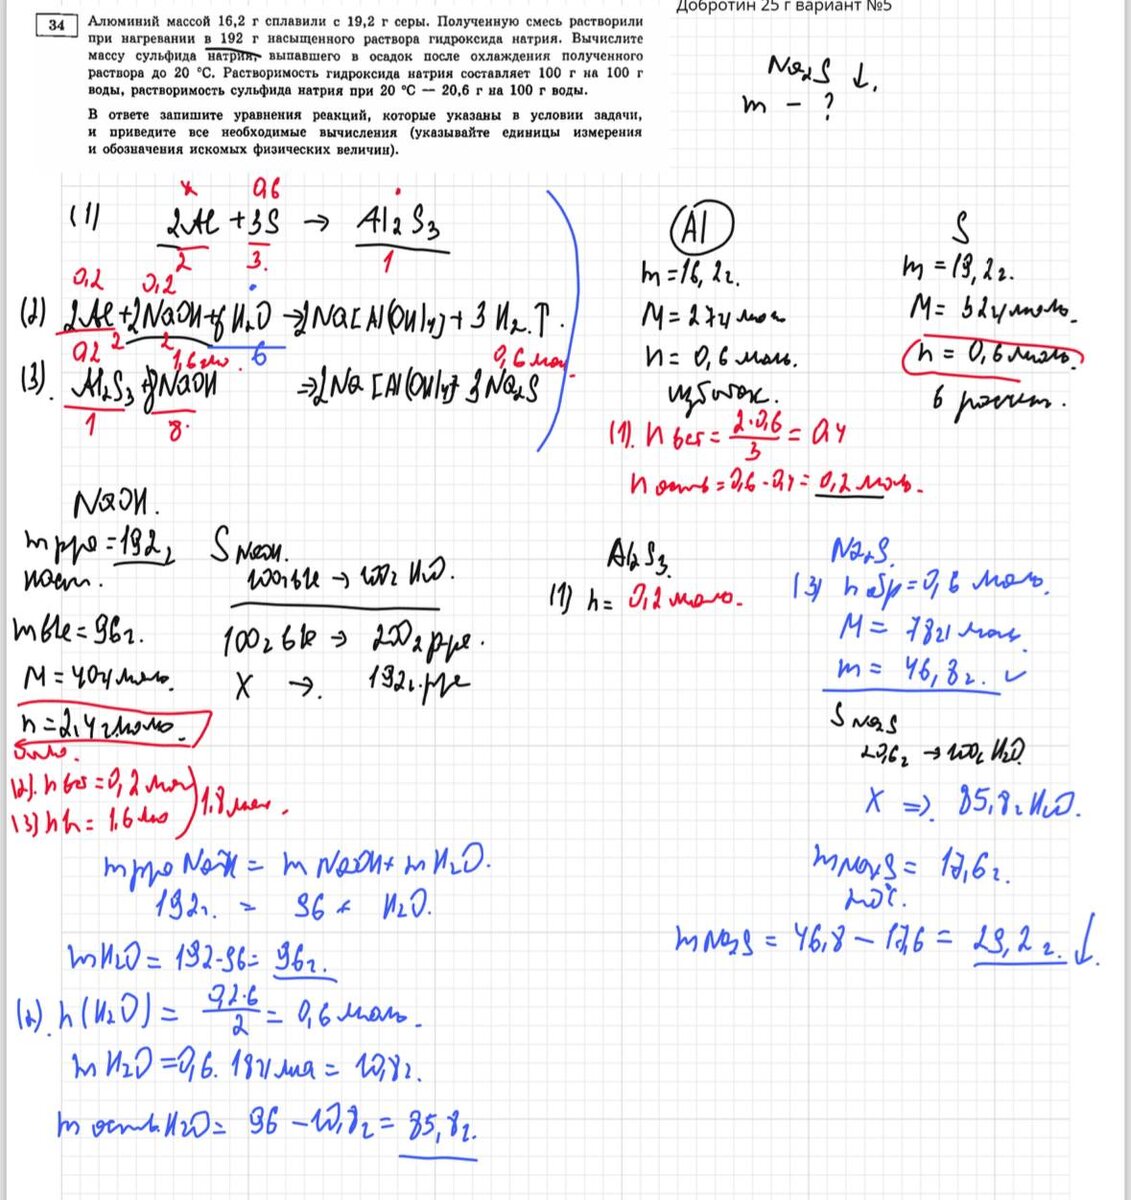 Добротин 25 г вариант №5
34
Алюминий массой 16,2 г сплавили с 19,2 г серы. Полученную смесь растворили
при нагревании в 192 г насыщенного раствора гидроксида натрия. Вычислите
массу сульфида натрия, выпавшего в осадок после охлаждения полученного
раствора до 20 °С. Растворимость гидроксида натрия составляет 100 г на 100 г
воды, растворимость сульфида натрия при 20 °С — 20,6 г на 100 г воды.
В ответе запишите уравнения реакций, которые указаны в условии задачи,
и приведите все необходимые вычисления (указывайте единицы измерения
и обозначения искомых физических величин).
Na₂S ↓.
m - ?
x 0,6
(1) 2Al + 3S → Al₂S₃
2 3. 1
0,2 0,2
(2) 2Al + 2NaOH + 6H₂O → 2Na[Al(OH)₄] + 3H₂↑.
2 2 6
0,2 1,6 0,6
(3). Al₂S₃ + 8NaOH → 2Na[Al(OH)₄] + 3Na₂S
1 8.
Al
m = 16,2г.
M = 27г/моль
n = 0,6 моль.
избыток.
S
m = 19,2г.
M = 32г/моль.
n = 0,6 моль.
в расчет.
(1). n =
2·0,6
3
= 0,4
n остав = 0,6 - 0,4 = 0,2 моль.
NaOH.
m рра = 192г
насыщ.
m в-ве = 96г.
M = 40г/моль.
n = 2,4 моль.
было.
S NaOH.
100г в-ве → 100г H₂O.
100г в-ве → 200г рра.
X → 192г. рра
(2). n = 0,2 моль
(3) n = 1,6 моль
1.8 моль.
Al₂S₃.
(1) n = 0,2 моль.
Na₂S.
(3) n обр = 0,6 моль.
M = 78г/моль
m = 46,8г.
S Na₂S
20,6г → 100г H₂O.
X ⇒ 85,2г H₂O.
m Na₂S = 17,6г.
20°C.
m Na₂S = 46,8 - 17,6 = 29,2 г. ↓.
m рра NaOH = m NaOH + m H₂O.
192г. = 96 + H₂O.
m H₂O = 192 - 96 = 96г.
(2). n(H₂O) =
0,2·6
2
= 0,6 моль.
m H₂O = 0,6 · 18г/моль = 10,8г.
m остав. H₂O = 96 - 10,8г = 85,2г.